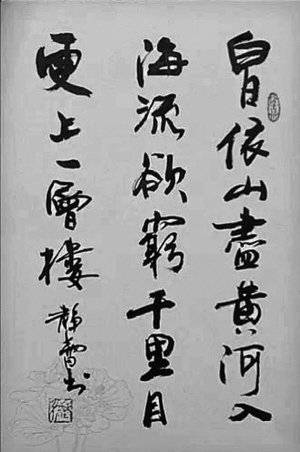 白日依山盡黄河入
海流欲窮千里目
更上一層樓
靜雪书